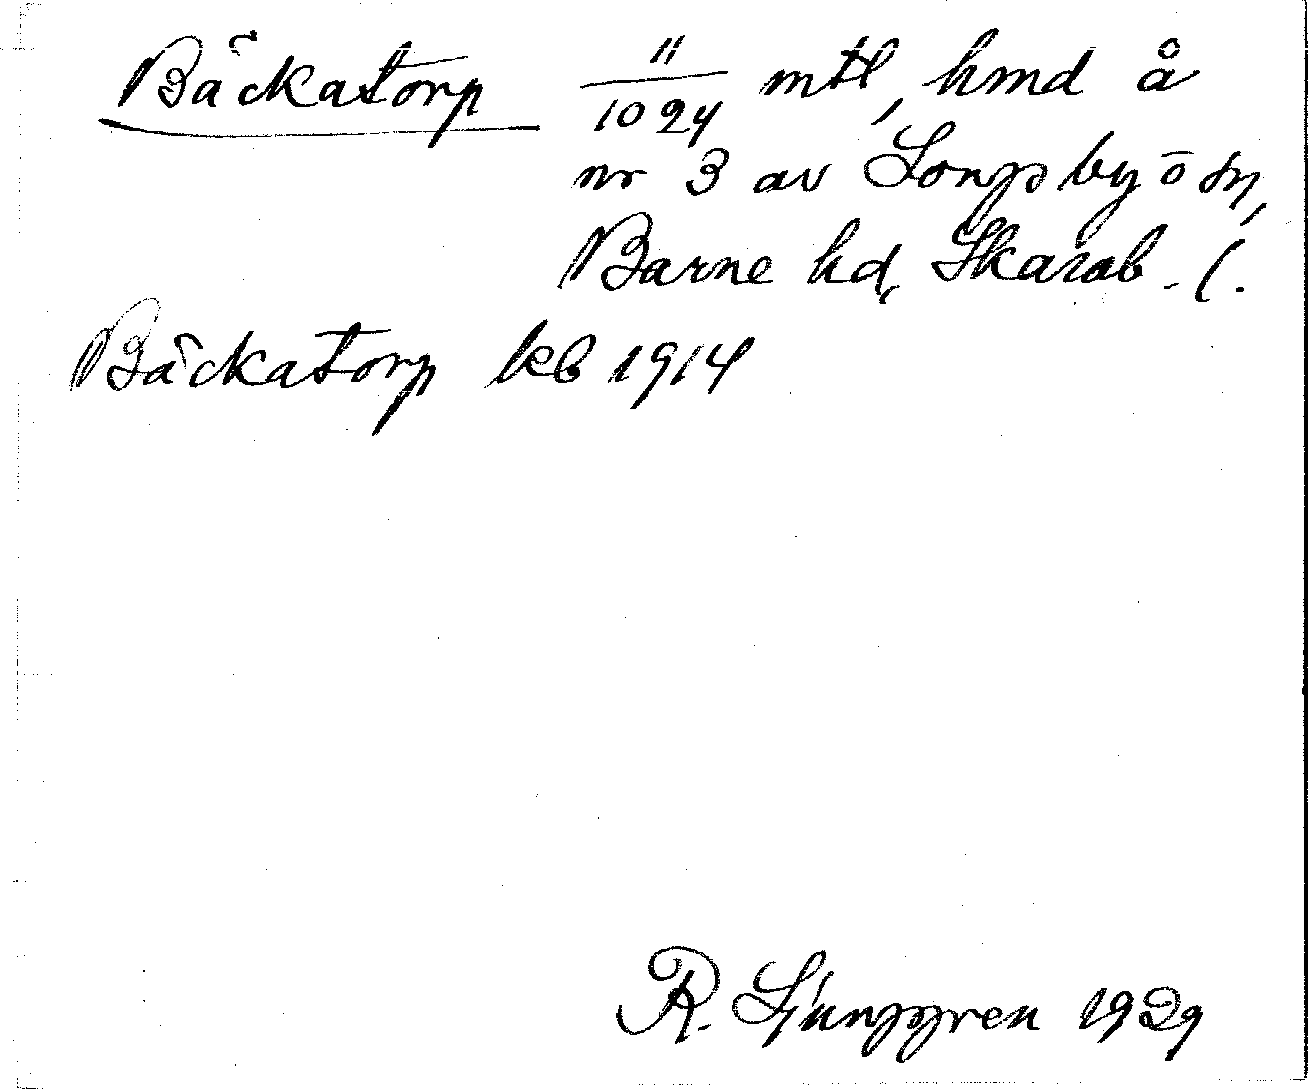 Bäckatorp 11/1024 mtl, hmd å
nr 3 av Longs by o sn,
Barne hd, Skarab. l.
Bäckatorp kb 1914
R. Ljunggren 1929